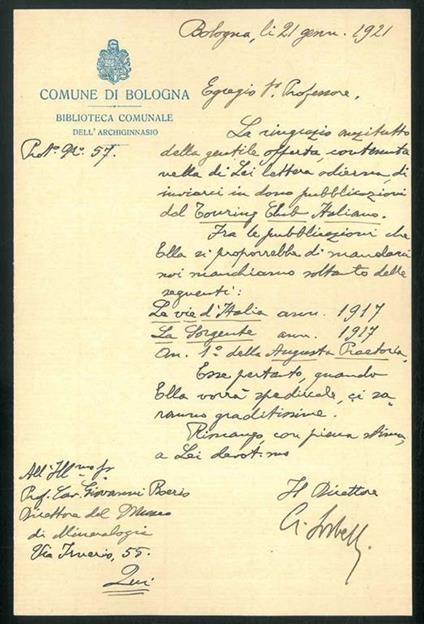 Bologna, li 21 genn. 1921
COMUNE DI BOLOGNA
BIBLIOTECA COMUNALE
DELL'ARCHIGINNASIO
Prot. N.º 57.
Egregio Sr. Professore,
La ringrazio anzitutto
della gentile offerta, contenuta
nella di Lei lettera odierna, di
inviarci in dono pubblicazioni
del Touring Club Italiano.
Fra le pubblicazioni che
Ella si proporrebbe di mandarci
noi manchiamo soltanto delle
seguenti:
Le vie d'Italia ann. 1917
La Sorgente ann. 1917
An. 1º della Augusta Praetoria,
Esse pertanto, quando
Ella vorrà spedircele, ci sa-
ranno graditissime.
Rimango, con piena stima,
a Lei devot.mo
Il Direttore
A. Sorbelli
All'Ill.mo Sr.
Prof. Cav. Giovanni Boeris
Direttore del Museo
di Mineralogia
Via Irnerio, 55.
Qui